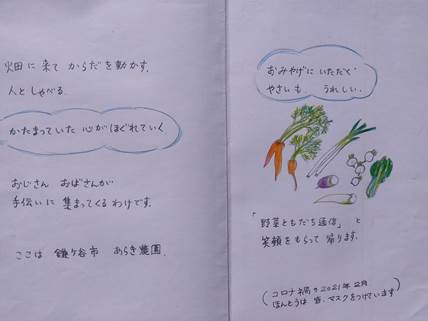 畑に来て からだを動かす。
人としゃべる。
かたまっていた 心が ほぐれていく
おじさん おばさんが
手伝いに 集まってくるわけです。
ここは 鎌ケ谷市 あらき農園。
おみやげに いただく
やさいも うれしい。
「野菜ともだち通信」と
笑顔をもらって 帰ります。
(コロナ禍の2021年2月
ほんとうは 皆、マスクをつけています)